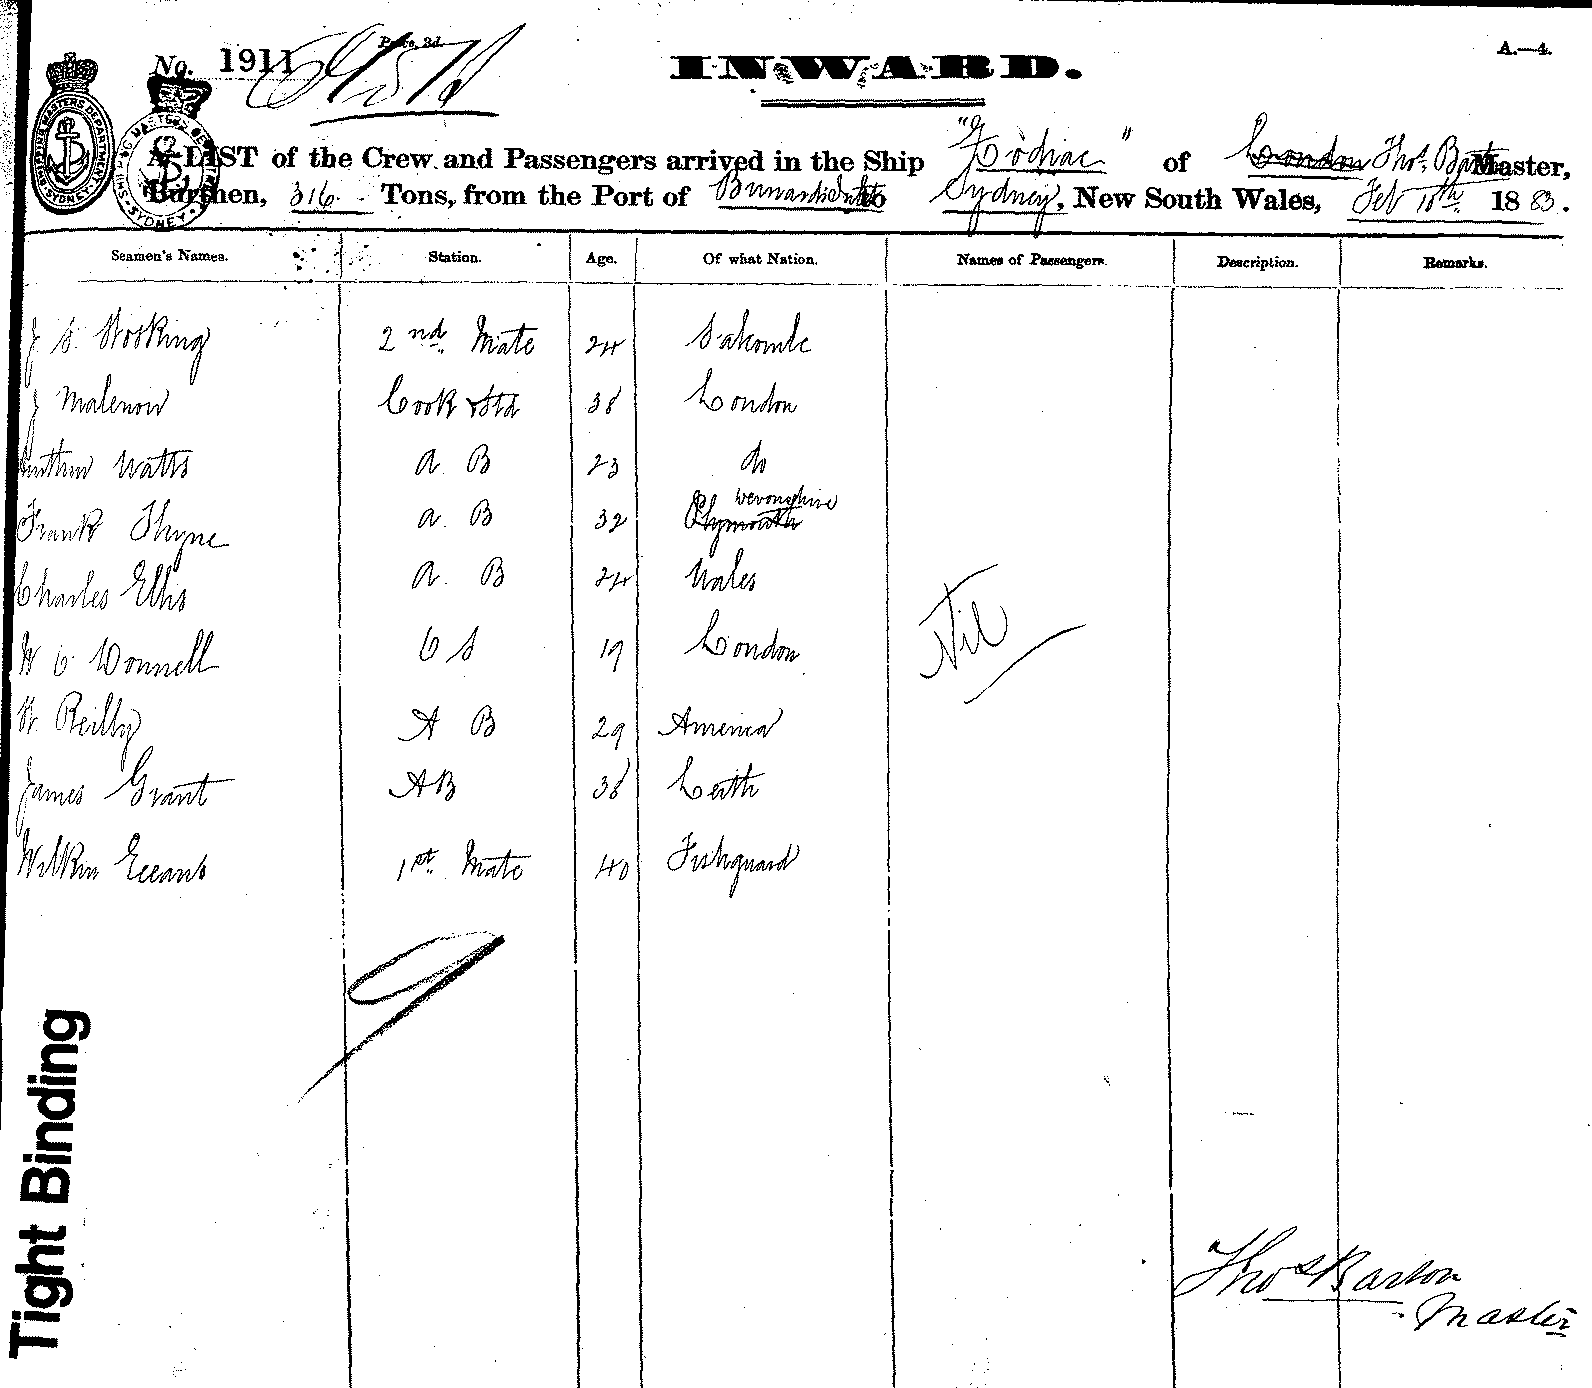 A.—4.
No. 1911
Price, 3d.
INWARD.
A LIST of the Crew and Passengers arrived in the Ship "Zodiac" of London Thos. Barton Master,
Burthen, 316 Tons, from the Port of to Sydney, New South Wales, Feb 18th 1883.
Seamen's Names. Station. Age. Of what Nation. Names of Passengers. Description. Remarks.
J S. Hosking 2nd Mate 24 Salcombe
J Malenoir Cook & Std 38 London
Arthur Watts A. B 23 do
Frank Thyne A. B 32 Plymouth Devonshire
Charles Ellis A. B 24 Wales
W O Donnell O S 19 London
W. Reilly A B 29 America
James Grant A B 38 Leith
Wilkin Eveans 1st Mate 40 Fishguard
Nil
Thos Barton
Master
Tight Binding
SHIPPING MASTERS DEPARTMENT SYDNEY